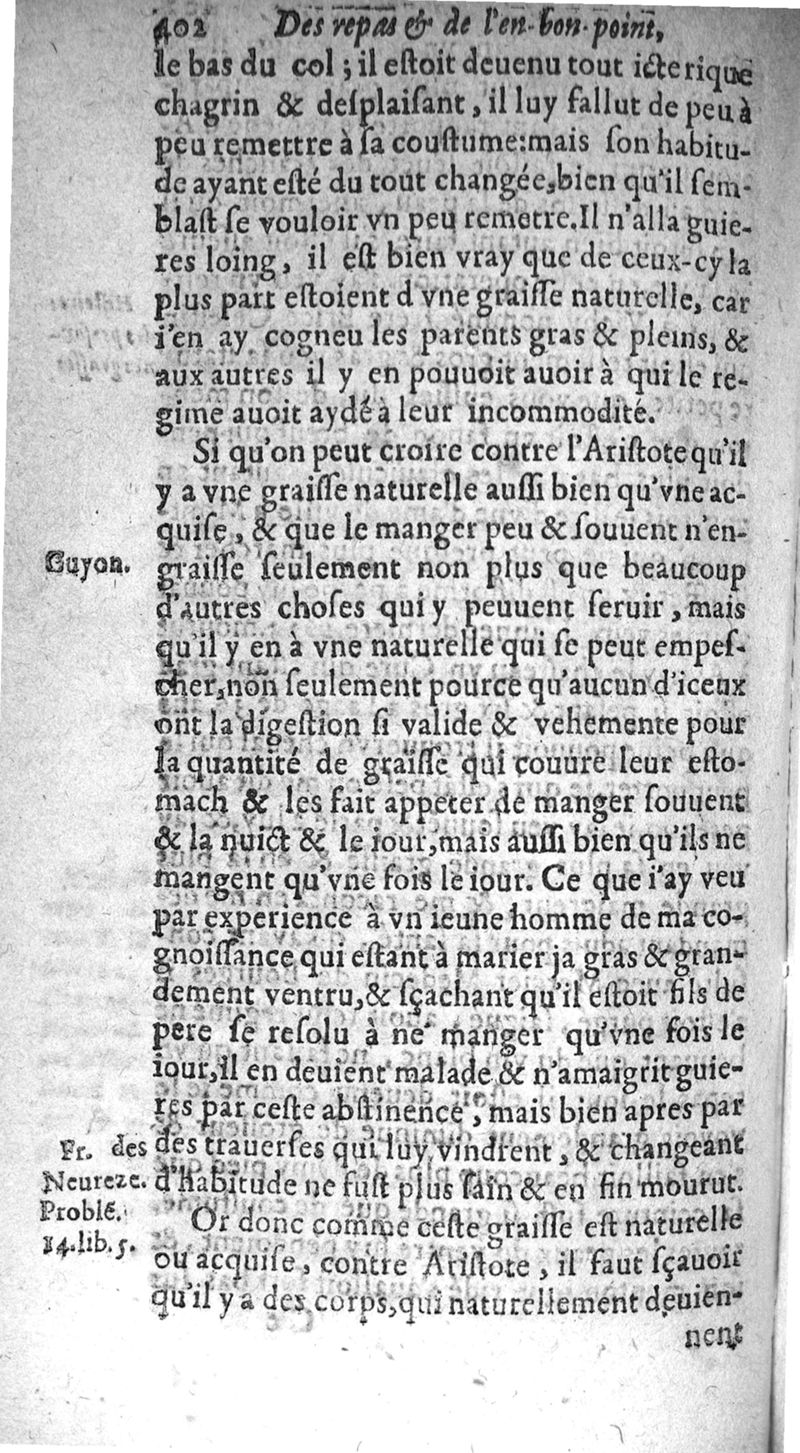 402 Des repas & de l'en-bon-point,
le bas du col ; il eſtoit deuenu tout icterique
chagrin & deſplaiſant, il luy fallut de peu à
peu remettre à ſa couſtume:mais ſon habitu-
de ayant eſté du tout changée,bien qu'il ſem-
blaſt ſe vouloir vn peu remetre.Il n'alla guie-
res loing, il eſt bien vray que de ceux-cy la
plus part eſtoient d vne graiſſe naturelle, car
i'en ay cogneu les parents gras & pleins, &
aux autres il y en pouuoit auoir à qui le re-
gime auoit aydé à leur incommodité.
Si qu'on peut croire contre l'Ariſtote qu'il
y a vne graiſſe naturelle auſſi bien qu'vne ac-
quiſe, & que le manger peu & ſouuent n'en-
Guyon.
graiſſe ſeulement non plus que beaucoup
d'autres choſes qui y peuuent ſeruir, mais
qu'il y en à vne naturelle qui ſe peut empeſ-
cher,non ſeulement pource qu'aucun d'iceux
ont la digeſtion ſi valide & vehemente pour
la quantité de graiſſe qui couure leur eſto-
mach & les fait appeter de manger ſouuent
& la nuict & le iour,mais auſſi bien qu'ils ne
mangent qu'vne fois le iour. Ce que i'ay veu
par experience à vn ieune homme de ma co-
gnoiſſance qui eſtant à marier ja gras & gran-
dement ventru,& ſçachant qu'il eſtoit fils de
pere ſe reſolu à ne manger qu'vne fois le
iour,il en deuient malade & n'amaigrit guie-
res par ceſte abſtinence, mais bien apres par
Fr. des
des trauerſes qui luy vindrent, & changeant
Neureze.
d'habitude ne fuſt plus ſain & en fin mourut.
Problé.
Or donc comme ceſte graiſſe eſt naturelle
14.lib.5.
ou acquiſe, contre Ariſtote, il faut ſçauoir
qu'il y a des corps,qui naturellement deuien-
nent